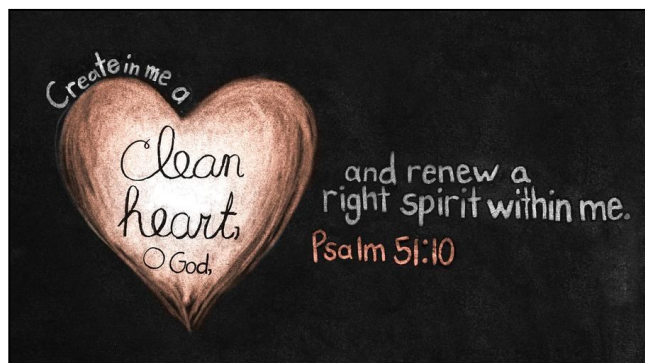 Create in me a
clean
heart,
O God,
and renew a
right spirit within me.
Psalm 51:10